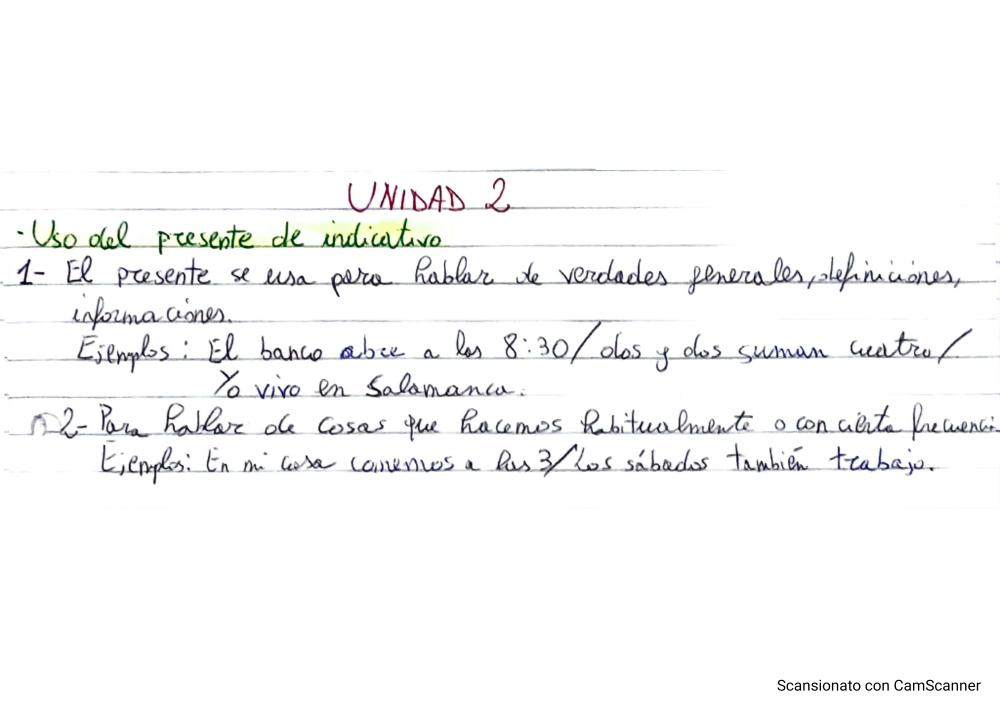 UNIDAD 2
· Uso del presente de indicativo
1- El presente se usa para hablar de verdades generales, definiciones,
informaciones.
Ejemplos: El banco abre a las 8:30/ dos y dos suman cuatro/
Yo vivo en Salamanca.
2- Para hablar de cosas que hacemos habitualmente o con cierta frecuenci
Ejemplos: En mi casa comemos a las 3/ Los sábados también trabajo.
Scansionato con CamScanner